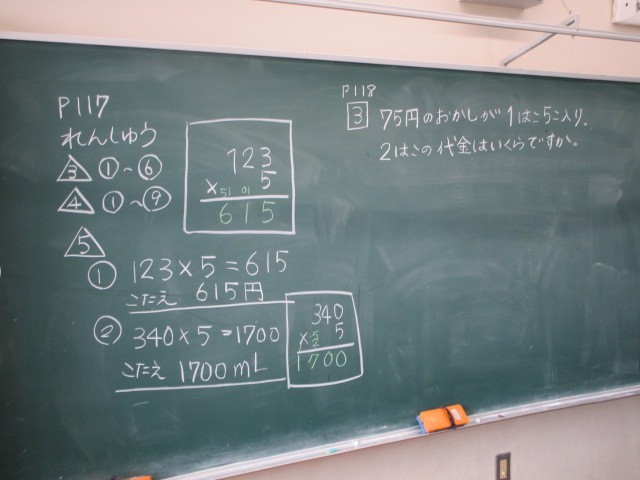 P117
れんしゅう
3 ①~⑥
4 ①~⑨
123
×5
615
5
① 123×5=615
こたえ 615円
② 340×5=1700
こたえ 1700mL
340
×5
1700
P118
3 75円のおかしが1はこ5こ入り。
2はこの代金はいくらですか。